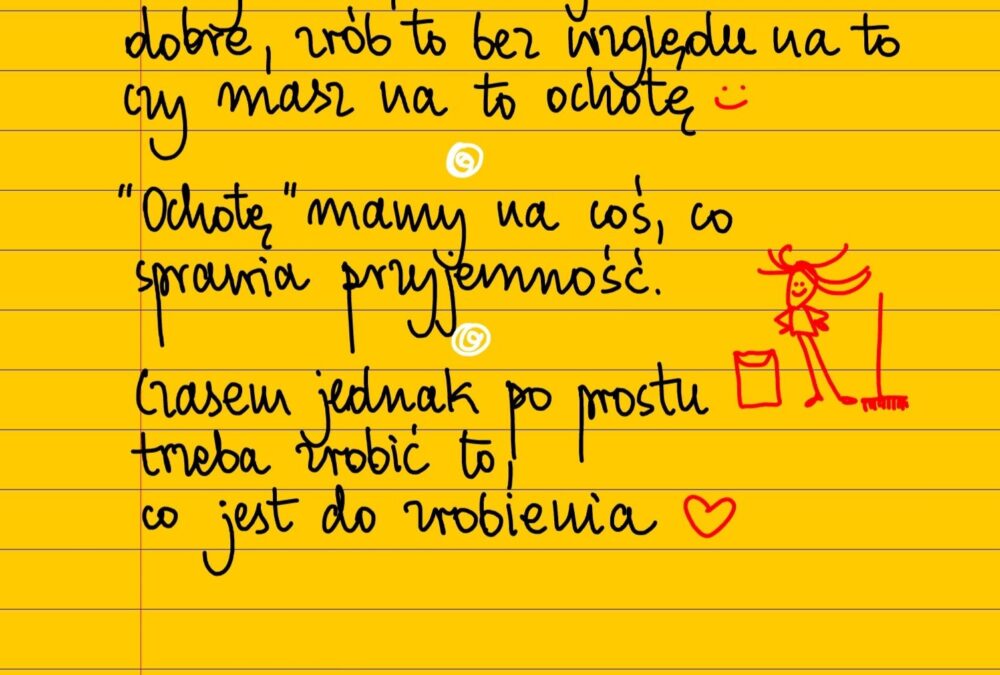 dobre, zrób to bez względu na to
czy masz na to ochotę
"Ochotę" mamy na coś, co
sprawia przyjemność.
Czasem jednak po prostu
trzeba zrobić to,
co jest do zrobienia